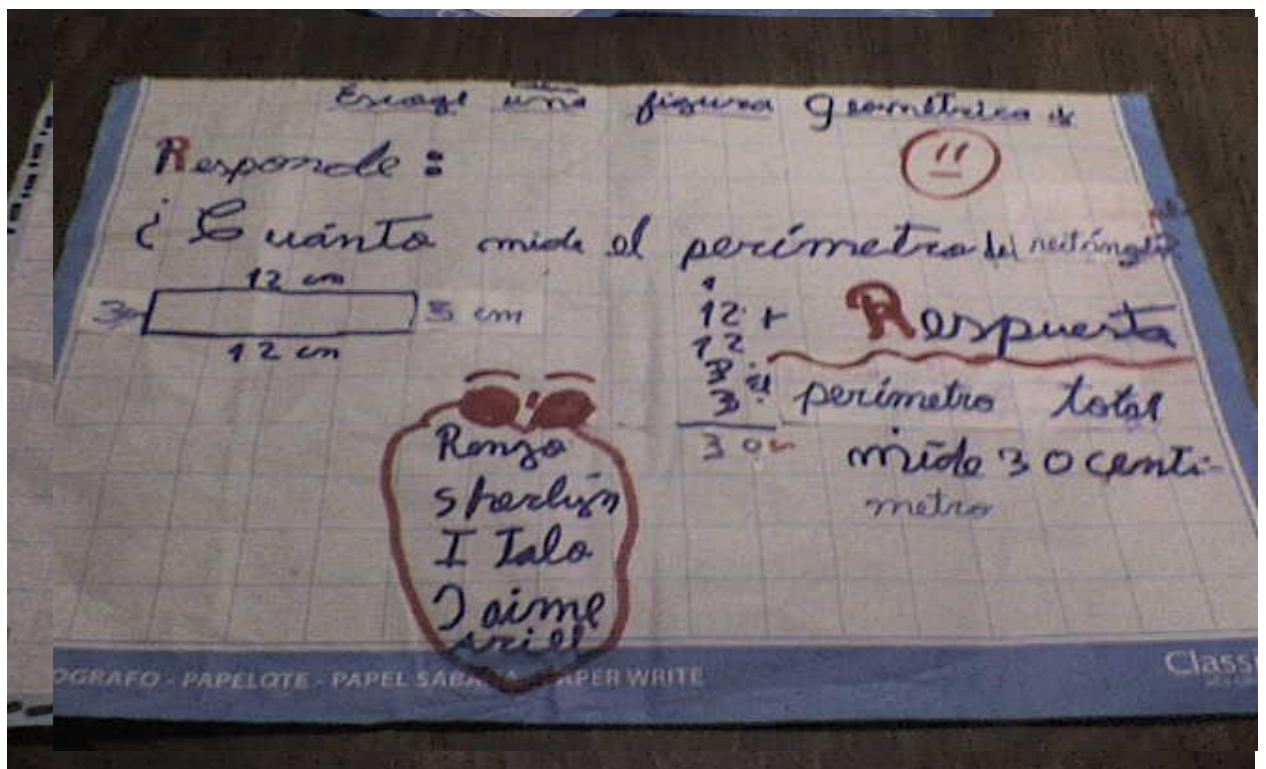 Escoge una figura Geométrica y
Responde :
¿ Cuánto mide el perímetro del rectángulo
12 cm
3 cm
12 cm
1
12 +
12
3
3
30
Respuesta
El perímetro total
mide 30 centi-
metro
Renzo
I Talo
Jaime
Ariel
OGRAFO - PAPELOTE - PAPEL SABANA - PAPER WRITE
Class